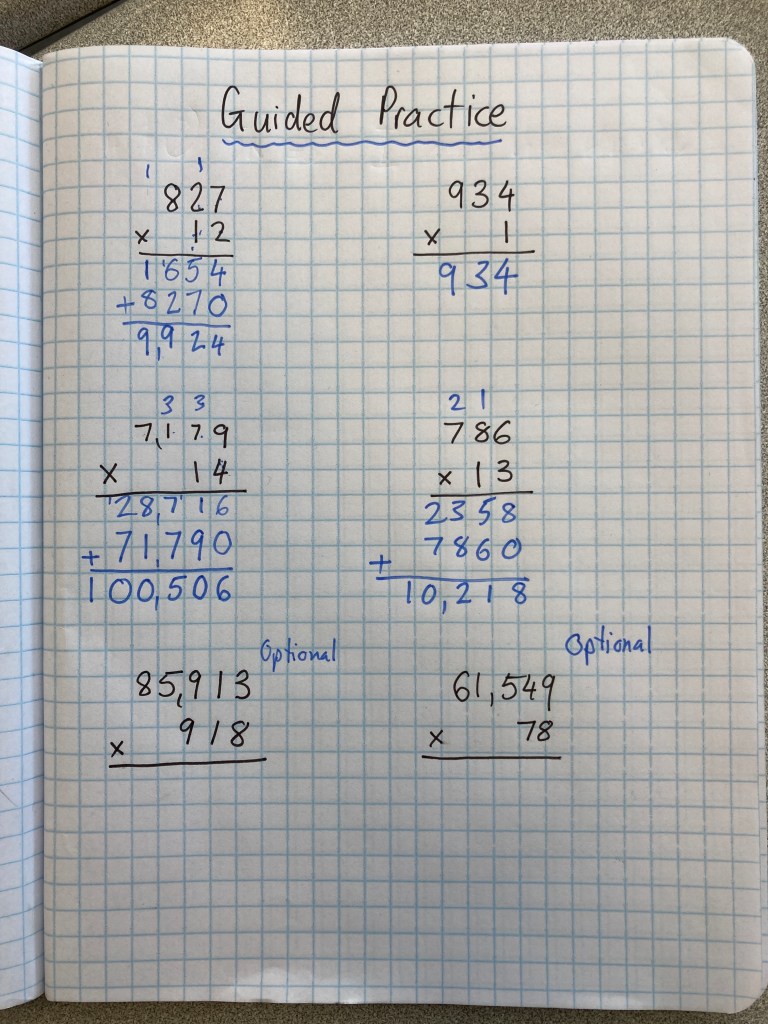 Guided Practice
1 1
827
x 12
1654
+8270
9,924
934
x 1
934
3 3
7,179
x 14
28,716
+71,790
100,506
2 1
786
x 13
2358
+ 7860
10,218
Optional
85,913
x 918
Optional
61,549
x 78